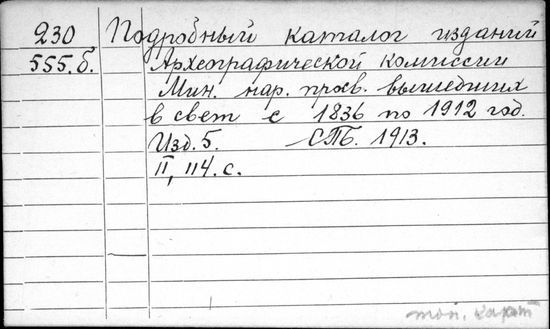 230 Подробный каталог изданий
555.б. Археографической комиссии
Мин. нар. просв. вышедших
в свет с 1836 по 1912 год.
Изд. 5. СПб. 1913.
II, 114. с.